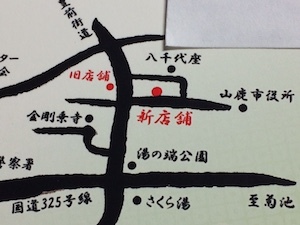 豊前街道
八千代座
ター
所
旧店舗
新店舗
山鹿市役所
金剛乗寺
湯の端公園
警察署
国道325号線
さくら湯
至菊池